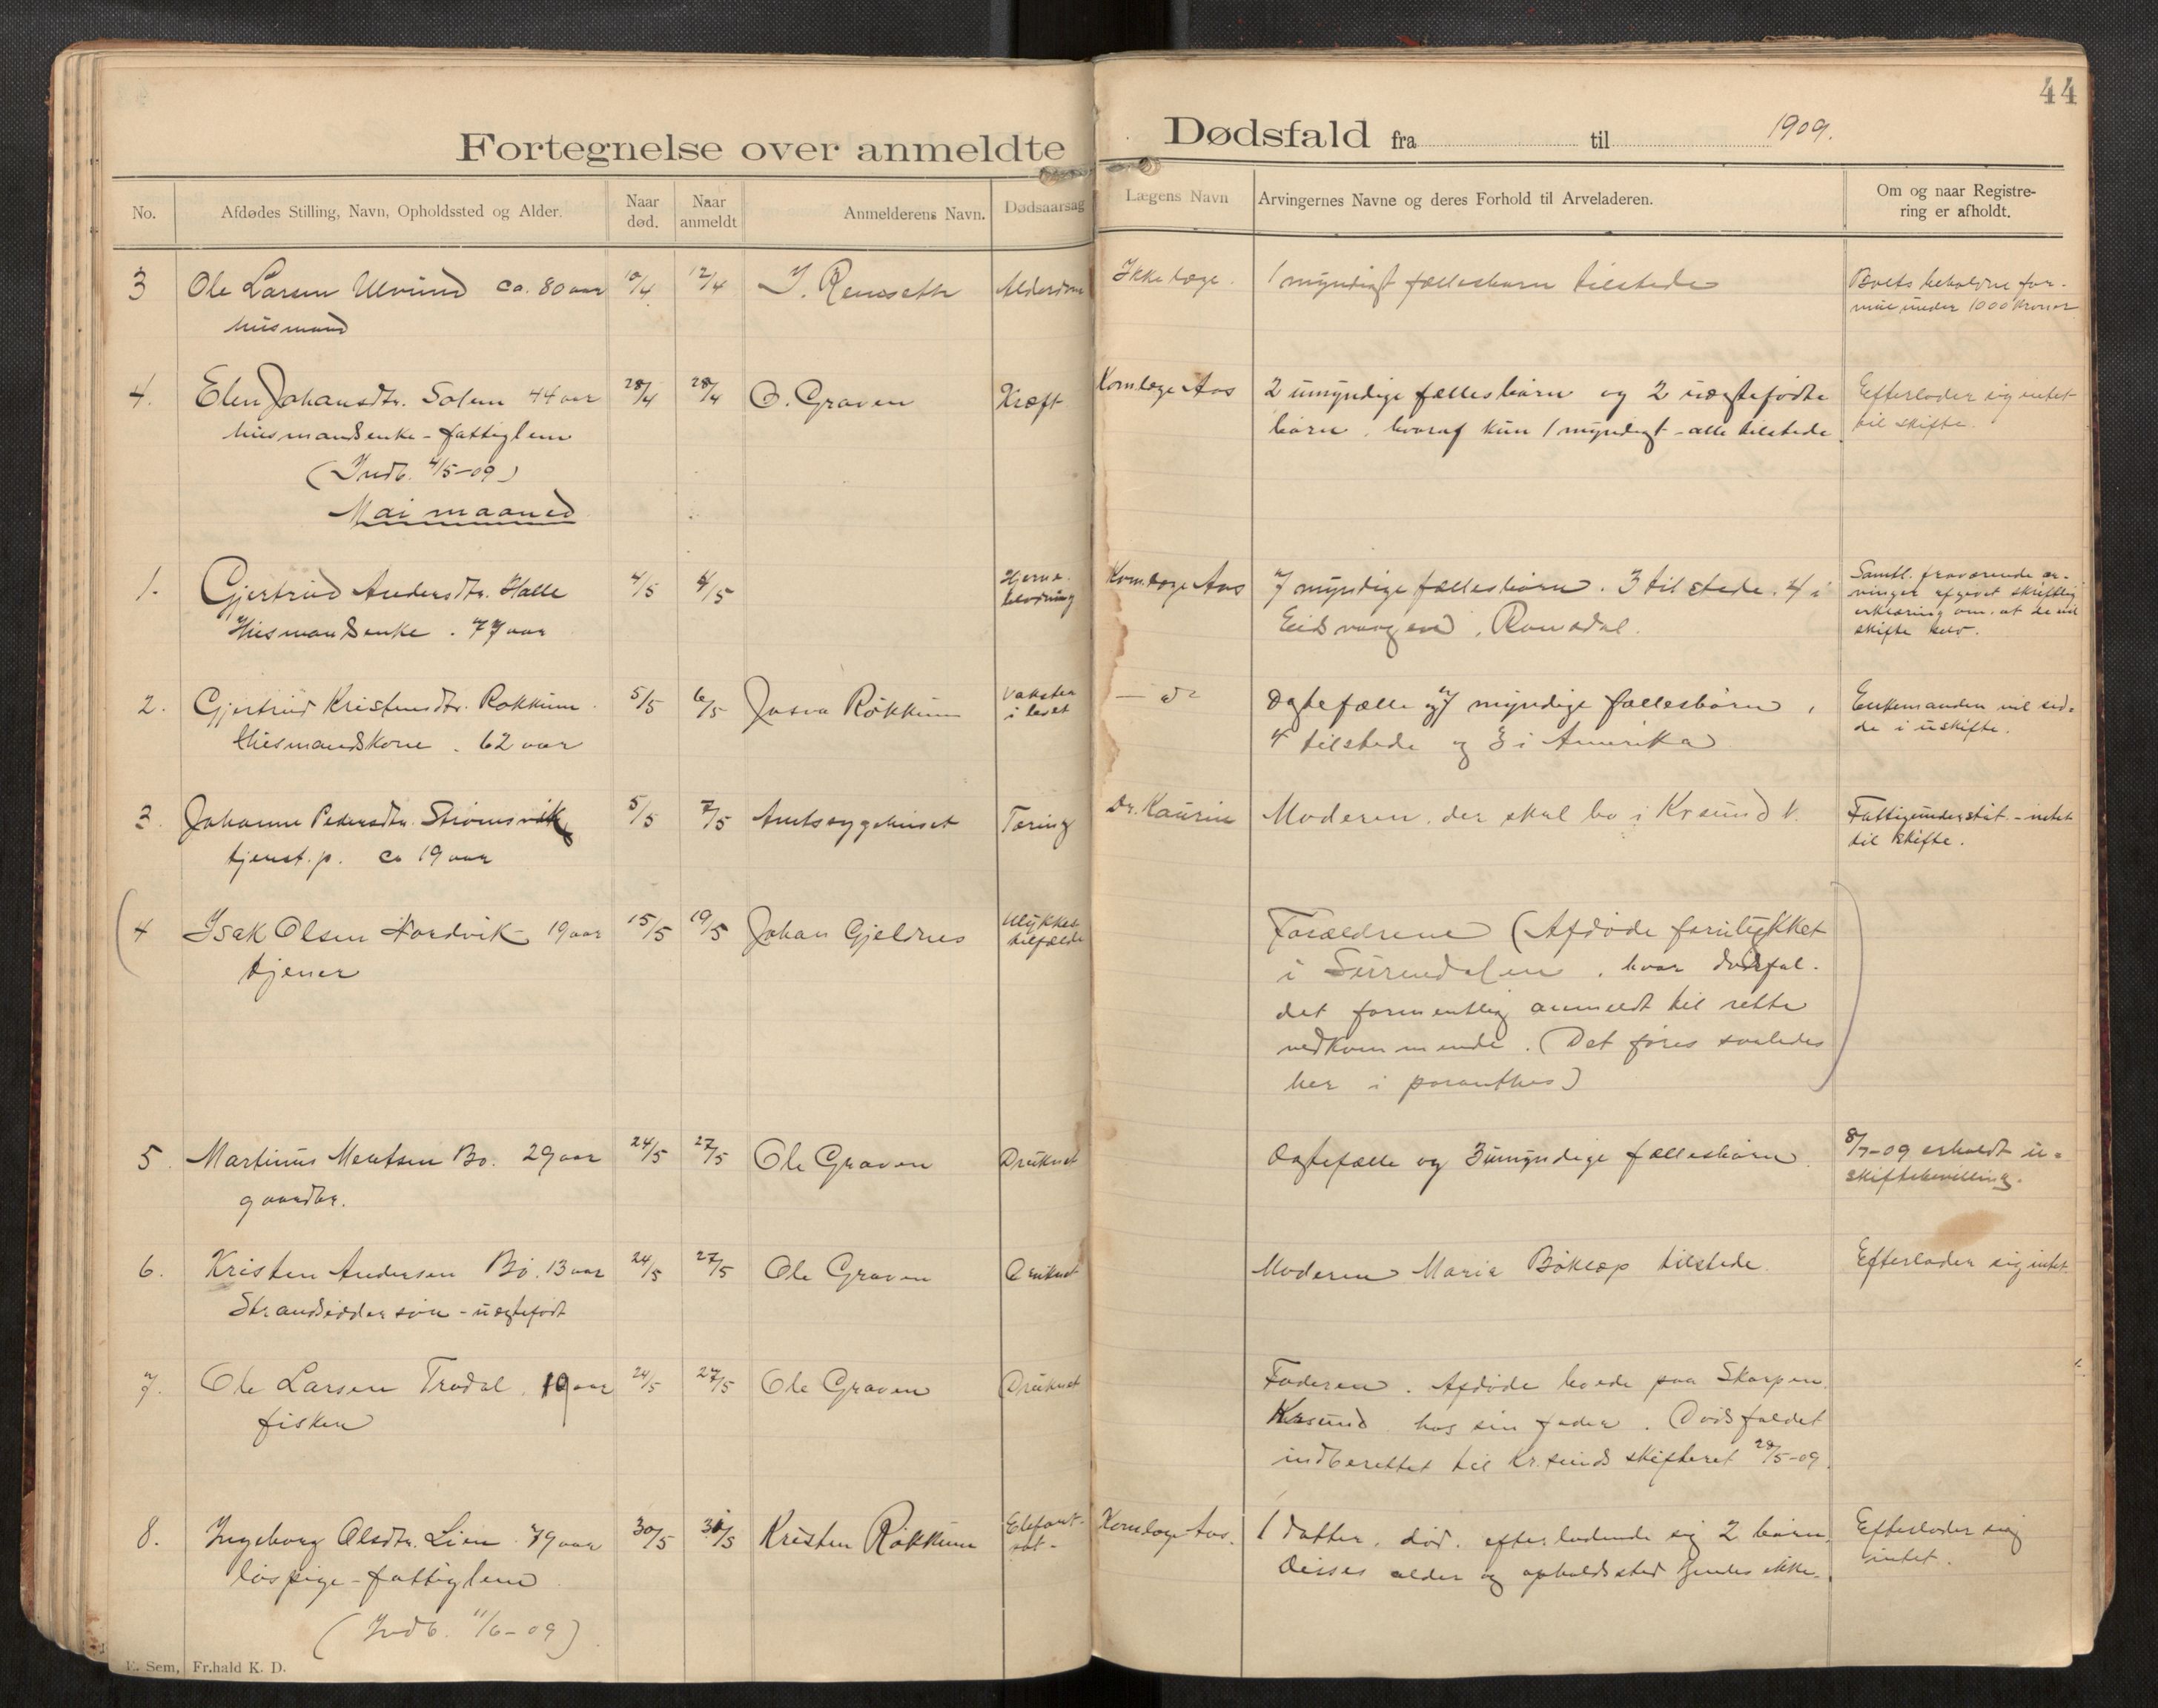 44
Fortegnelse over anmeldte Dødsfald fra til 1909.
No. Afdødes Stilling, Navn, Opholdssted og Alder. Naar død. Naar anmeldt Anmelderens Navn. Dødsaarsag Lægens Navn Arvingernes Navne og deres Forhold til Arveladeren. Om og naar Registrering er afholdt.
3 Ole Larsen Ulvund ca. 80 aar 10/4 12/4 Alderdom Ikke læge. 1 myndigt fællesbarn tilstede Boets beholdne for-
husmand mue under 1000 kroner
4. Elen Johansdtr. Solem 44 aar 28/4 28/4 O. Graven Kræft Komlæge Aas 2 umyndige fællesbørn og 2 uægtefødte Efterlader sig intet
husmandsenke - fattiglem børn, hvoraf kun 1 myndigt - alle tilstede til skifte.
(Indb. 4/5-09)
Mai maaned
1. Gjertrud Andersdtr. Halle 4/5 4/5 Hjerne- Kom.læge Aas 7 myndige fællesbørn. 3 tilstede. 4 i Samtl. fraværende ar-
Husmandsenke. 77 aar blødning Eidsvaagen, Romsdal. vinger afgivet skriftlig
erklæring om, at de vil
skifte selv.
2. Gjertrud Kristensdtr. Røkkum 5/5 6/5 Røkkum i livet — do Ægtefælle og 7 myndige fællesbørn, Enkemanden vil sid-
Husmandskone. 62 aar 4 tilstede og 3 i Amerika de i uskifte.
3. Johanne Pedersdtr. Strømsvik 5/5 7/5 Amtssygehuset Tæring Dr. Kaurin Moderen, der skal bo i Krsund N. Fattigunderstøt. - intet
tjenst.p. ca 19 aar til skifte.
(4 Isak Olsen Nordvik 19 aar 15/5 19/5 Johan Gjeldnes Ulykkes- Forældrene (Afdøde forulykket
tjener tilfælde i Surendalen, hvor dødsfal-
det formentlig anmeldt til rette
vedkommende. (Det føres saaledes
her i paranthes)
5. Martinus Mentsen Bø. 29 aar 24/5 27/5 Ole Graven Druknet Ægtefælle og 3 umyndige fællesbørn. 8/7-09 erholdt u-
gaardbr. skiftebevilling.
6. Kristen Andersen Bø. 13 aar 24/5 27/5 Ole Graven Druknet Moderen Marie Bøklep tilstede. Efterlader sig intet.
Strandsiddersøn - uægtefødt
7. Ole Larsen Trødal. 19 aar 24/5 27/5 Ole Graven Druknet Faderen. Afdøde boede paa Skorpen
fisker Krsund hos sin fader. Dødsfaldet
indberettet til Kr.sunds skifteret 28/5-09.
8. Ingeborg Olsdtr. Lien 79 aar 30/5 31/5 Kristen Røkkum Elefant- Komlæge Aas. 1 datter, død, efterladende sig 2 børn. Efterlader sig
løspige - fattiglem Disses alder og opholdssted kjendes ikke. intet.
(Indb. 11/6-09)
E. Sem, Fr.hald K. D.